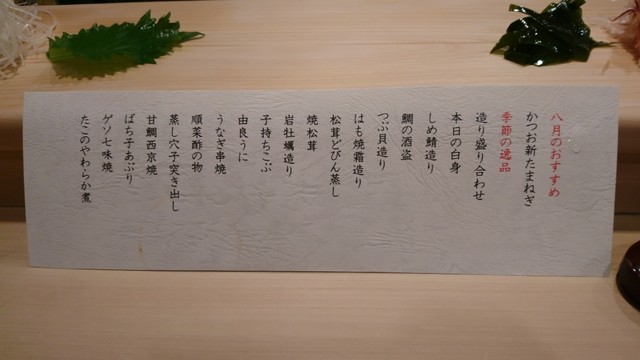 八月のおすすめ
かつお新たまねぎ
季節の逸品
造り盛り合わせ
本日の白身
しめ鯖造り
鯛の酒盗
つぶ貝造り
はも焼霜造り
松茸どびん蒸し
焼松茸
岩牡蠣造り
子持ちこぶ
由良うに
うなぎ串焼
順菜酢の物
蒸し穴子突き出し
甘鯛西京焼
ばち子あぶり
ゲソ七味焼
たこのやわらか煮